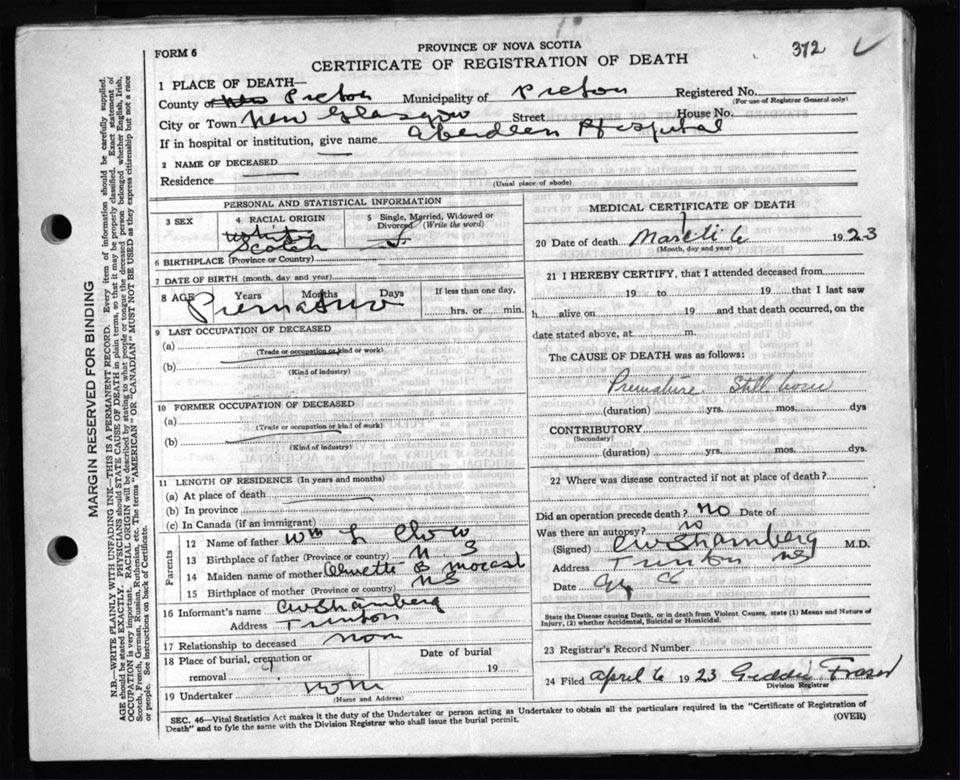 372
FORM 6
PROVINCE OF NOVA SCOTIA
CERTIFICATE OF REGISTRATION OF DEATH
1 PLACE OF DEATH—
County of Pictou Municipality of Pictou Registered No.
(For use of Registrar General only)
City or Town New Glasgow Street House No.
If in hospital or institution, give name Aberdeen Hospital
2 NAME OF DECEASED
Residence
(Usual place of abode)
PERSONAL AND STATISTICAL INFORMATION
3 SEX
4 RACIAL ORIGIN
5 Single, Married, Widowed or Divorced (Write the word)
White
Scotch
S
6 BIRTHPLACE (Province or Country)
7 DATE OF BIRTH (month, day and year)
8 AGE Years Months Days
If less than one day,
hrs. or min.
9 LAST OCCUPATION OF DECEASED
(a)
(Trade or occupation or kind or work)
(b)
(Kind of industry)
10 FORMER OCCUPATION OF DECEASED
(a)
(Trade or occupation or kind of work)
(b)
(Kind of industry)
11 LENGTH OF RESIDENCE (In years and months)
(a) At place of death
(b) In province
(c) In Canada (if an immigrant)
Parents
12 Name of father Wm L
13 Birthplace of father (Province or country) N. S
14 Maiden name of mother B
15 Birthplace of mother (Province or country) NS
16 Informant's name
Address Trenton
17 Relationship to deceased none
18 Place of burial, cremation or removal
Date of burial
19
19 Undertaker none
(Name and Address)
MEDICAL CERTIFICATE OF DEATH
20 Date of death March 6 1923
(Month, day and year)
21 I HEREBY CERTIFY, that I attended deceased from
19 to 19 that I last saw
h alive on 19 and that death occurred, on the
date stated above, at m.
The CAUSE OF DEATH was as follows:
Premature. Still born
(duration) yrs. mos. dys
CONTRIBUTORY
(Secondary)
(duration) yrs. mos. dys.
22 Where was disease contracted if not at place of death?
Did an operation precede death? no Date of
Was there an autopsy? no
(Signed) M.D.
Address Trenton NS
Date
State the Disease causing Death, or in death from Violent Causes, state (1) Means and Nature of Injury, (2) whether Accidental, Suicidal or Homicidal.
23 Registrar's Record Number
24 Filed April 6 1923 Geddie Fraser
Division Registrar
SEC. 46—Vital Statistics Act makes it the duty of the Undertaker or person acting as Undertaker to obtain all the particulars required in the "Certificate of Registration of
Death" and to fyle the same with the Division Registrar who shall issue the burial permit.
(OVER)
MARGIN RESERVED FOR BINDING
N.B.—WRITE PLAINLY WITH UNFADING INK—THIS IS A PERMANENT RECORD. Every item of information should be carefully supplied.
AGE should be stated EXACTLY. PHYSICIANS should STATE CAUSE OF DEATH in plain terms, so that it may be properly classified. Exact statement of
OCCUPATION is very important. RACIAL ORIGIN will be described by stating to what people or tongue the deceased person belonged whether English, Irish,
Scotch, French, German, Russian, Ruthenian, etc. The terms "AMERICAN" OR "CANADIAN" MUST NOT BE USED as they express citizenship but not a race
or people. See instructions on back of Certificate.